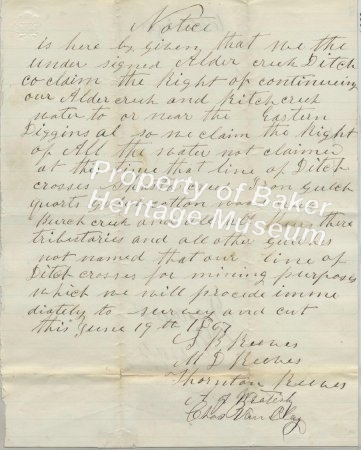 Notice
is here by given that we the
under signed Alder creek Ditch
co claim the Right of continueing
our Alder creek and Ritch creek
water to or near the Eastern
Diggins al so we claim the Right
of All the water not claimed
at the time that line of Ditch
crosses creek Iron Gulch
quarts cotton wood
Burch creek and all there
tributaries and all other gulches
not named that our line of
Ditch crosses for mining purposes
which we will procide imme
diately to survey and cut
this June 19th 186
S B Reeves
M D Reeves
Thornton Reeves
Chas Van Clay
Property of Baker
Heritage Museum